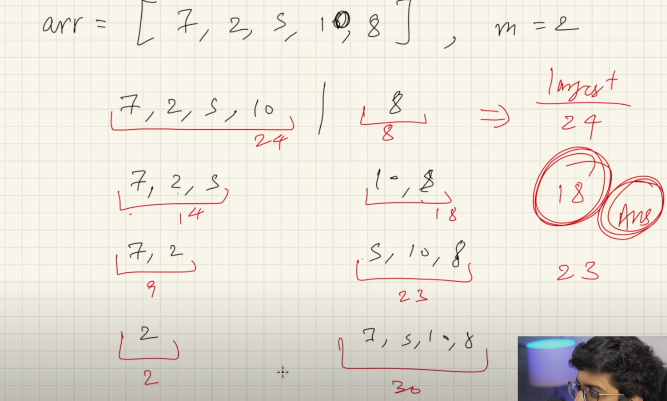 arr = [ 7, 2, 5, 10, 8 ] , m = 2
7, 2, 5, 10 | 8 ⇒ largest
24 8 24
7, 2, 5 10, 8 18 Ans
14 18
7, 2 5, 10, 8 23
9 23
2 7, 5, 10, 8
2 30